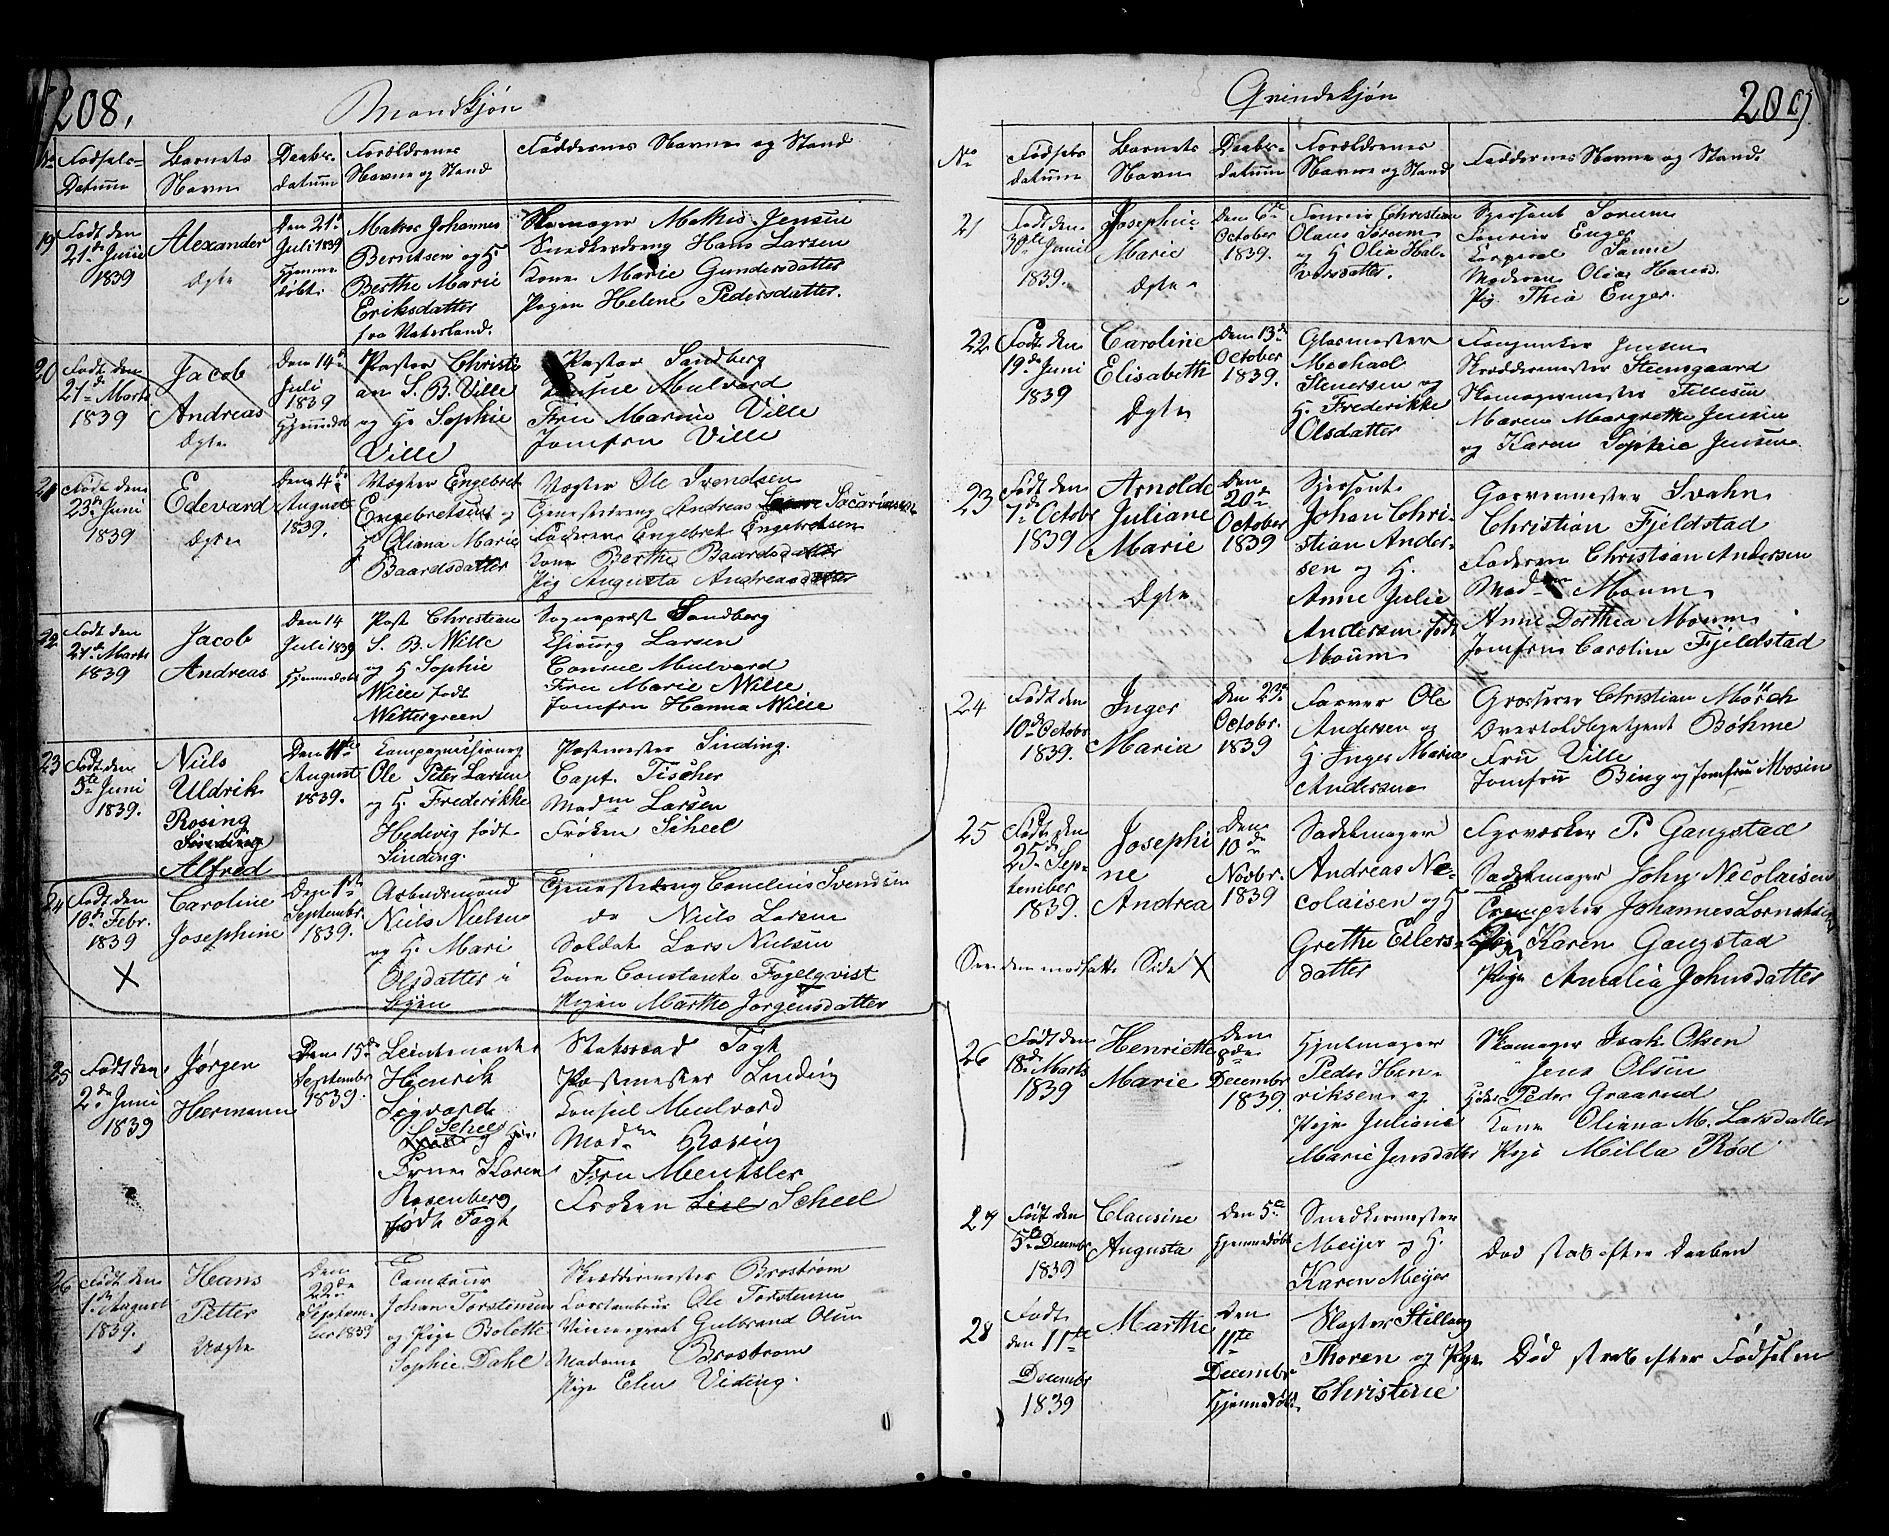 208.
Mandkjøn
No
Fødsels-
Datum
Barnets
Navn
Daabs-
datum
Forældrenes
Navne og Stand
Faddernes Navne og Stand
19
Født den
21de Juni
1839
Alexander
Ægte
Den 21de
Juli 1839
Hjemme-
døbt.
Matros Johannes
Berntsen og H.
Berthe Marie
Eriksdatter
fra Vaterland.
Skomager Mathis Jensen
Snedkerdreng Hans Larsen
Kone Marie Gundersdatter
Pigen Helene Pedersdatter.
20
Født den
21de Marts
1839
Jacob
Andreas
Ægte
Den 14de
Juli
1839
Hjemmedøbt
Pastor Christi
an S. B. Wille
og H. Sophie
Wille
Pastor Sandberg
Consul Mulvard
Fru Marie Wille
Jomfru Wille
21
Født den
23de Juni
1839
Edevard
Ægte
Den 4de
August
1839.
Vægter Engebret
Engebretsen og
H. Oliana Marie
Baardsdatter
Vægter Ole Svendsen
Tjenestedreng Andreas Socariassen
Faderen Engebret Engebretsen
Kone Berthe Baardsdatter
Pig Augusta Andreasdatter
22
Født den
21de Marts
1839
Jacob
Andreas
Den 14
Juli 1839
Hjemmedøbt
Past Christian
S. B. Wille
og H. Sophie
Wille født
Wettergreen
Sognepræst Sandberg
Chirurg Larsen
Consul Mulvard
Fru Marie Wille
Jomfru Hanna Wille
23
Født den
5te Juni
1839.
Niels
Uldrik
Rosing
Sinding
Alfred
Den 11te
August
1839.
Kompagnichirurg
Ole Peter Larsen
og H. Frederikke
Hedevig født
Sinding.
Postmester Sinding.
Capt. Tischer
Madme Larsen
Frøken Scheel
24
Født den
10de Febr.
1839
X
Caroline
Josephine
Den 1ste
Septembr
1839.
Arbeidsmand
Niels Nielsen
og H. Mari
Olsdatter i
byen
Tjenestedreng Cornelius Svendsen
do Niels Larsen
Soldat Lars Nielsen
Kone Constante Fogelqvist
Pigen Marthe Jørgensdatter
25
Født den
2den Juni
1839
Jørgen
Hermann
Den 15de
Septembr
1839.
Leutenant
Henrik
Sigvard
Scheel
og H.
Karen
Rosenberg
født Fogh
Statsraad Fogh
Postmester Sinding
Konsul Mulvard
Madme Rosing
Fru Mentsler
Frøken Scheel
26
Født den
1de August
1839.
Hans
Petter
Uægte
Den
22de
Septem-
ber 1839
Tambour
Johan Torstensen
og Pige Bolette
Sophie Dahl
Skræddermester Brostrøm
Ole Torstensen
Gulbrand Olsen
Madame Brostrom
Pige Elen Viding.
Qvindekjøn
209
No
Fødsels
datum
Barnets
Navn
Daabs-
datum
Forældrenes
Navne og Stand
Faddernes Navne og Stand.
21
Født den
30te Juni
1839.
Josephine
Marie
Ægte
Den 6te
October
1839.
Fourér Christian
Olaus Sørum
og H. Olia Hal-
vorsdatter.
Sjersant Sørum
Fourér Enger
Korporal Sanne
Moderen Olia Halvorsd.
Pig. Thea Enger.
22
Født den
19de Juni
1839
Caroline
Elisabeth
Ægte
Den 13de
October
1839.
Glasmester
Michael
Stenersen og
H. Frederikke
Olsdatter
Jensen
Skreddermester Steensgaard
Skomagermester Tellesen
Maren Margrethe Jensen
og Karen Sophie Jensen
23
Født den
7de Octobr
1839
Arnolde
Juliane
Marie
Ægte
Den
20de
October
1839
Sjersant
Johan Chri-
stian Ander-
sen og H.
Anne Julie
Andersen født
Moum
Garvermester Svahn
Christian Fjeldstad
Faderen Christian Andersen
Madme Moum
Anne Dorthea Moum
Jomfru Caroline Fjeldstad
24
Født den
10de Octobr
1839.
Inger
Maria
Den 23de
Octobr.
1839
Farver Ole
Andersen og
H. Inger Maria
Andersen
Grosserer Christian Mørch
Overtoldbetjent Bøhme
Fru Wille
Jomfru Bing og Jomfru Mosin
25
Født den
25de Sep-
tember
1839.
Josephi
ne
Andrea
Den
10de
Novbr.
1839
Sadelmager
Andreas Ne-
colaisen og H.
Grethe Eilers-
datter
Farver P. Gangstad
Sadelmager John Necolaisen
Trompeter Johannes
Pige Karen Gangstad
Pige Amalia Johnsdatter
See den modsatte Side X
26
Født den
18de Marts
1839
Henriette
Marie
Den
8de
Decembr
1839.
Hjulmager
Peder Hen-
riksen og
Pige Juliane
Marie Jensdatter
Skomager Isak Olsen
Jens Olsen
Peder Graarud
Kone Oliana M. Larsdatter
Pige Milla Rød
27
Født den
5te Decembr
1839
Clausine
Augusta
Den 5te
Hjemmedøbt
Snedkermester
Meijer og H.
Karen Meijer
Død strax efter Daaben
28
Født
den 11te
Decembr
1839
Marthe
Den
11te
Decembr
Hjemmedøbt
Slagter Stillaug
Thoren og Pige
Christine
Død strax efter Fødselen